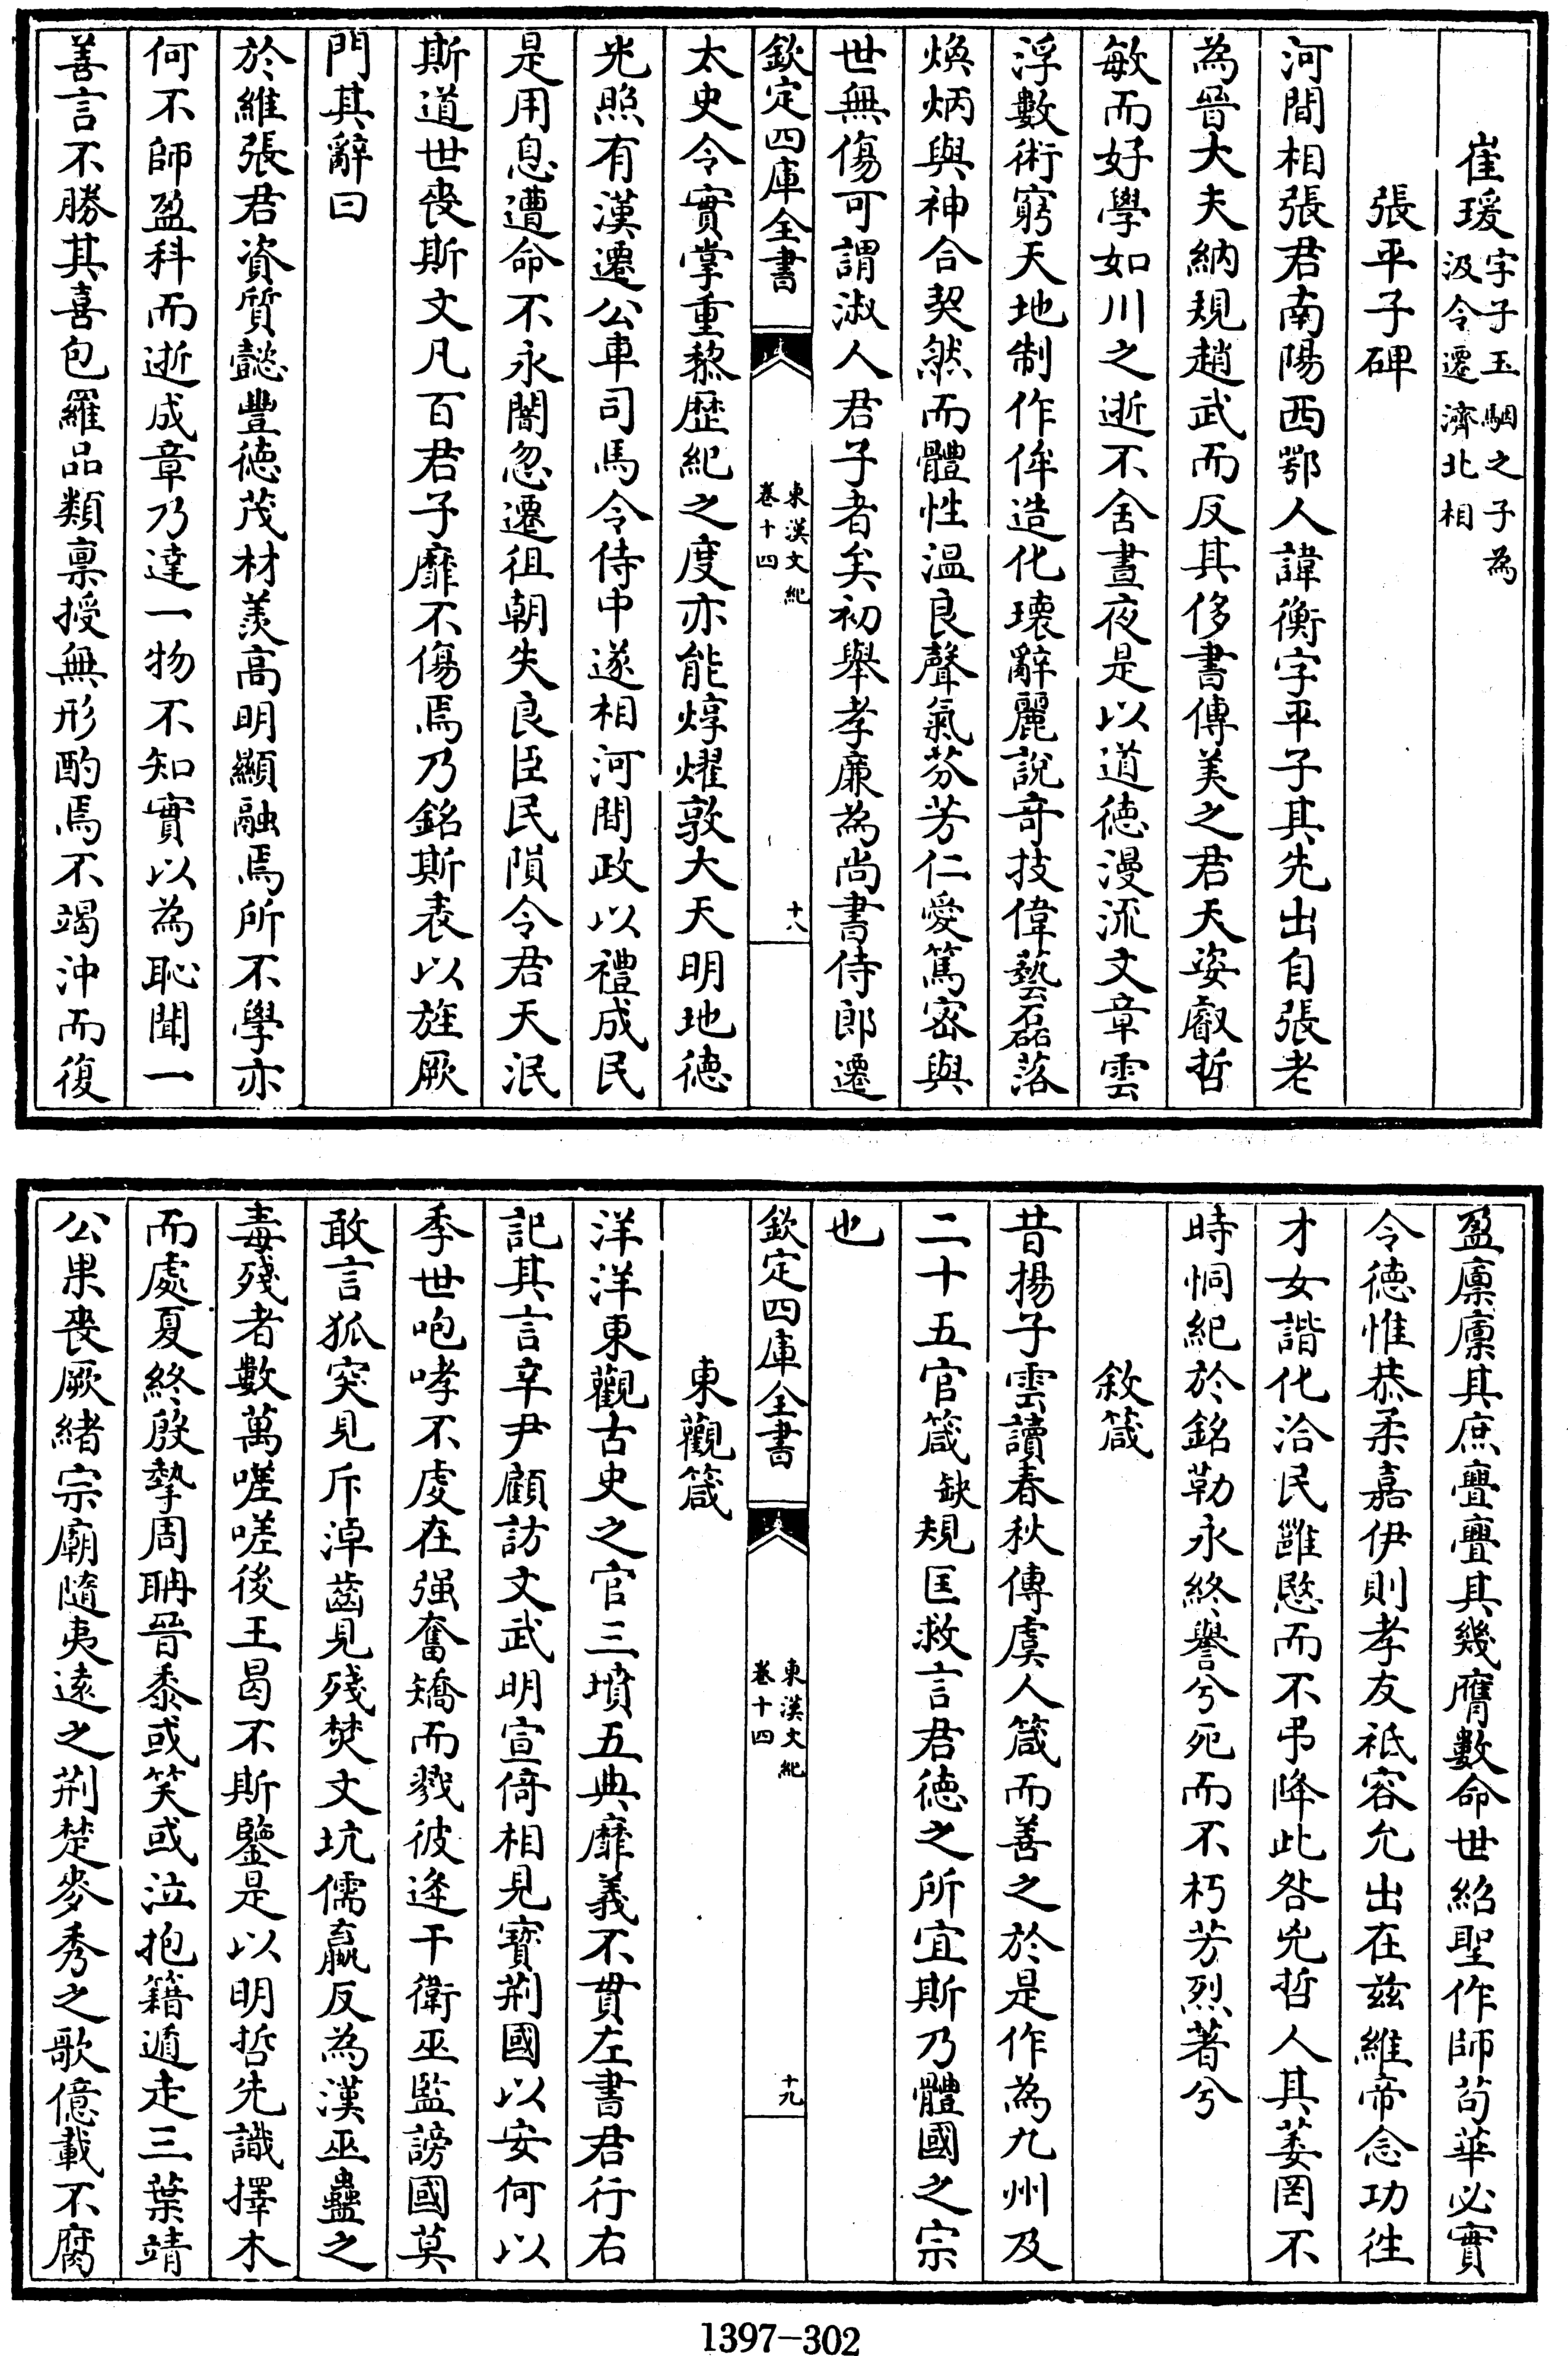 崔瑗字子玉駰之子為
汲令遷濟北相
張平子碑
河間相張君南陽西鄂人諱衡字平子其先出自張老
為晉大夫納規趙武而反其侈書傳美之君天姿叡哲
敏而好學如川之逝不舍晝夜是以道德漫流文章雲
浮數術窮天地制作侔造化瓌辭麗說竒技偉藝磊落
煥炳與神合契然而體性温良聲氣芬芳仁愛篤密與
世無傷可謂淑人君子者矣初舉孝廉為尚書侍郎遷
欽定四庫全書
東漢文紀
卷十四
十八
太史令實掌重黎歴紀之度亦能焞燿敦大天明地德
光照有漢遷公車司馬令侍中遂相河間政以禮成民
是用息遭命不永闇忽遷徂朝失良臣民隕令君天泯
斯道世喪斯文凡百君子靡不傷焉乃銘斯表以旌厥
門其辭曰
於維張君資質懿豐德茂材羨高明顯融焉所不學亦
何不師盈科而逝成章乃達一物不知實以為恥聞一
善言不勝其喜包羅品類禀授無形酌焉不竭沖而復
盈廩廩其庶亹亹其幾膺數命世紹聖作師茍華必實
令德惟恭柔嘉伊則孝友祗容允出在兹維帝念功徃
才女諧化洽民雝愍而不弔降此咎兇哲人其萎罔不
時恫紀於銘勒永終譽兮死而不朽芳烈著兮
敘箴
昔揚子雲讀春秋傳虞人箴而善之於是作為九州及
二十五官箴缺規匡救言君德之所宜斯乃體國之宗
也
欽定四庫全書
東漢文紀
卷十四
十九
東觀箴
洋洋東觀古史之官三墳五典靡義不貫左書君行右
記其言辛尹顧訪文武明宣倚相見寶荆國以安何以
季世咆哮不虔在强奮矯而戮彼逄干衛巫監謗國莫
敢言狐突見斥淖齒見殘焚文坑儒嬴反為漢巫蠱之
毒殘者數萬嗟嗟後王曷不斯鑒是以明哲先識擇木
而處夏終殷摯周聃晉黍或笑或泣抱籍遁走三葉靖
公果喪厥緒宗廟隨夷遠之荆楚麥秀之歌億載不腐
1397-302